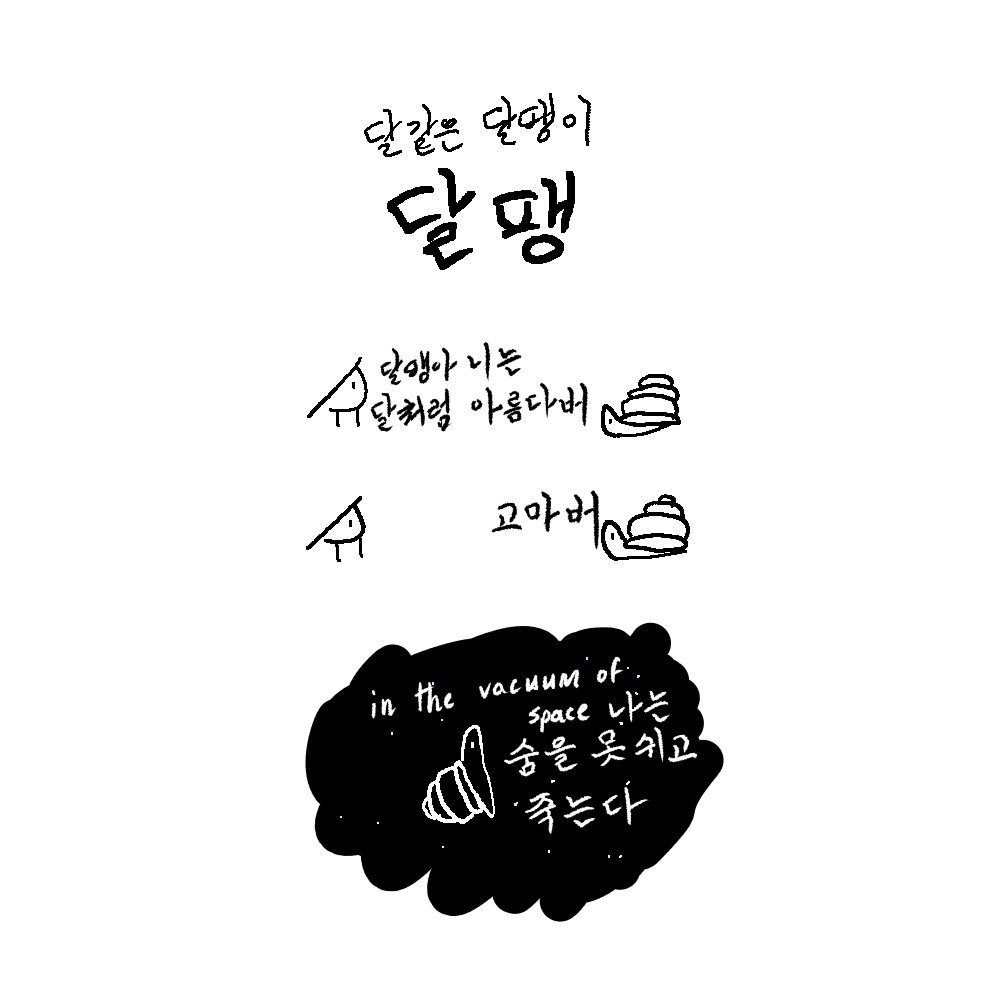 달같은 달팽이
달팽
달팽아 니는
달처럼 아름다버
고마버
in the vacuum of
space 나는
숨을 못 쉬고
죽는다